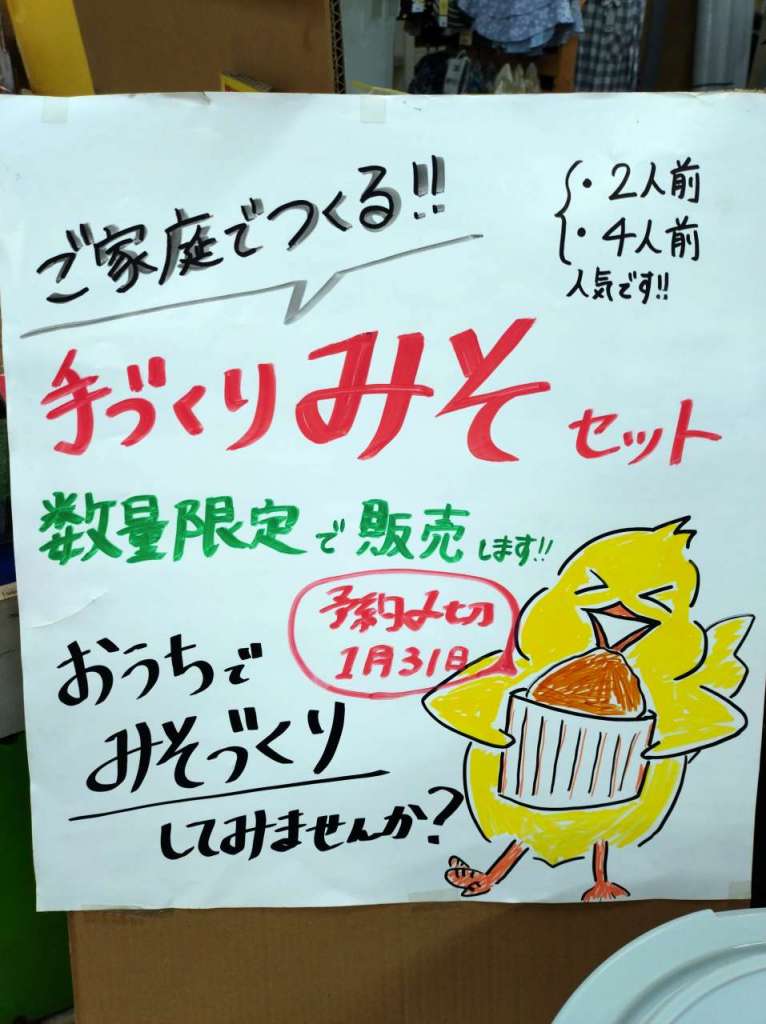 ご家庭でつくる!!
・2人前
・4人前
人気です!!
手づくりみそセット
数量限定で販売します!!
予約〆切
1月31日
おうちで
みそづくり
してみませんか?